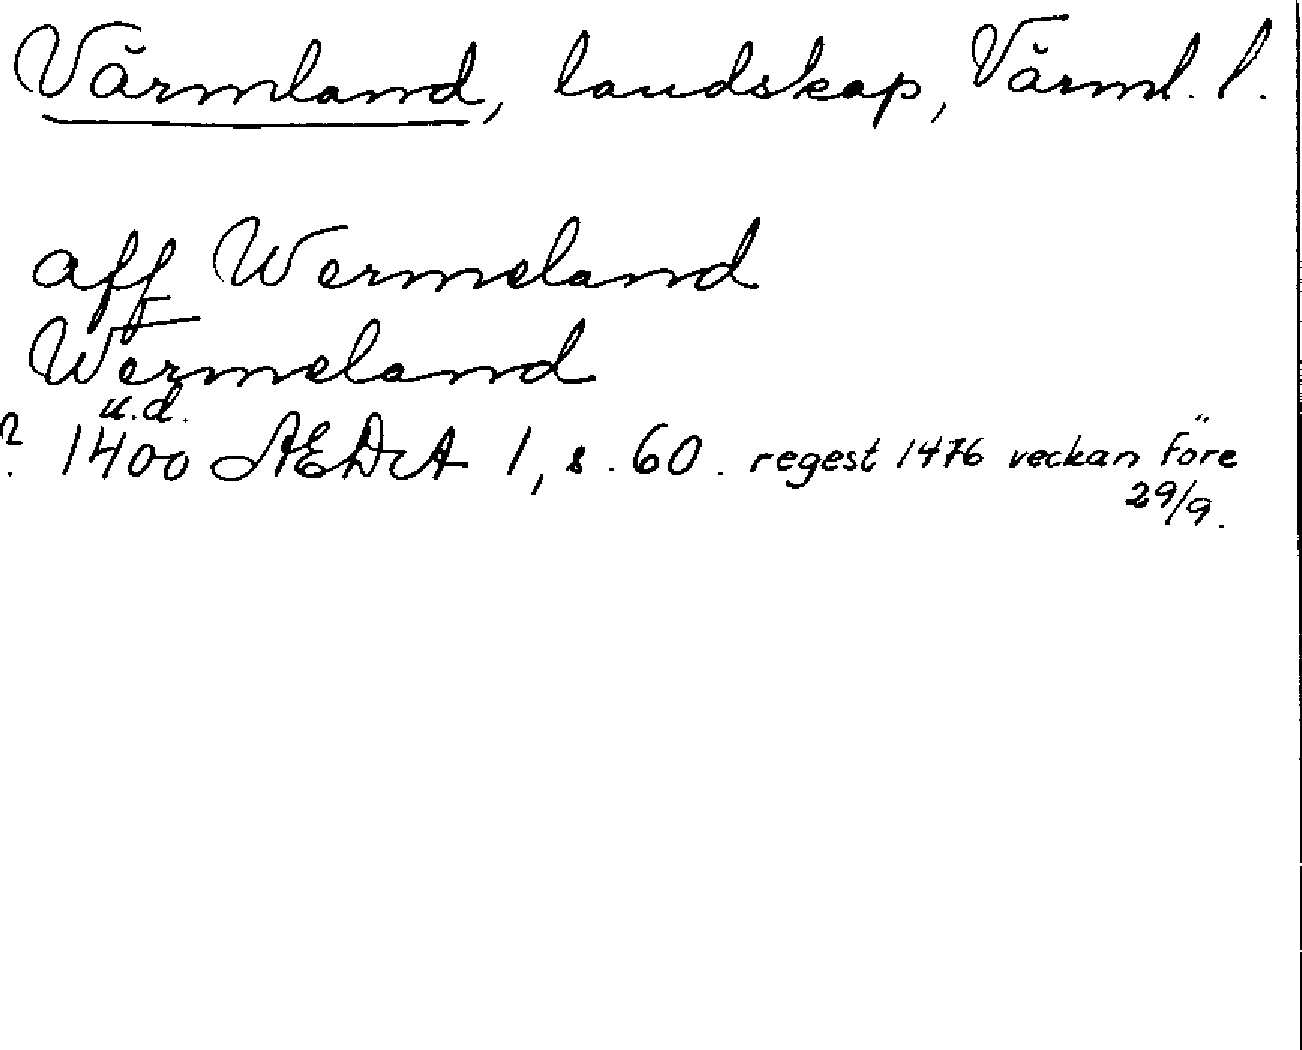 Värmland, landskap, Värml. l.
aff Wermeland
Wermeland
u.d.
? 1400 ÆDA 1, s. 60. regest 1476 veckan före
29/9.